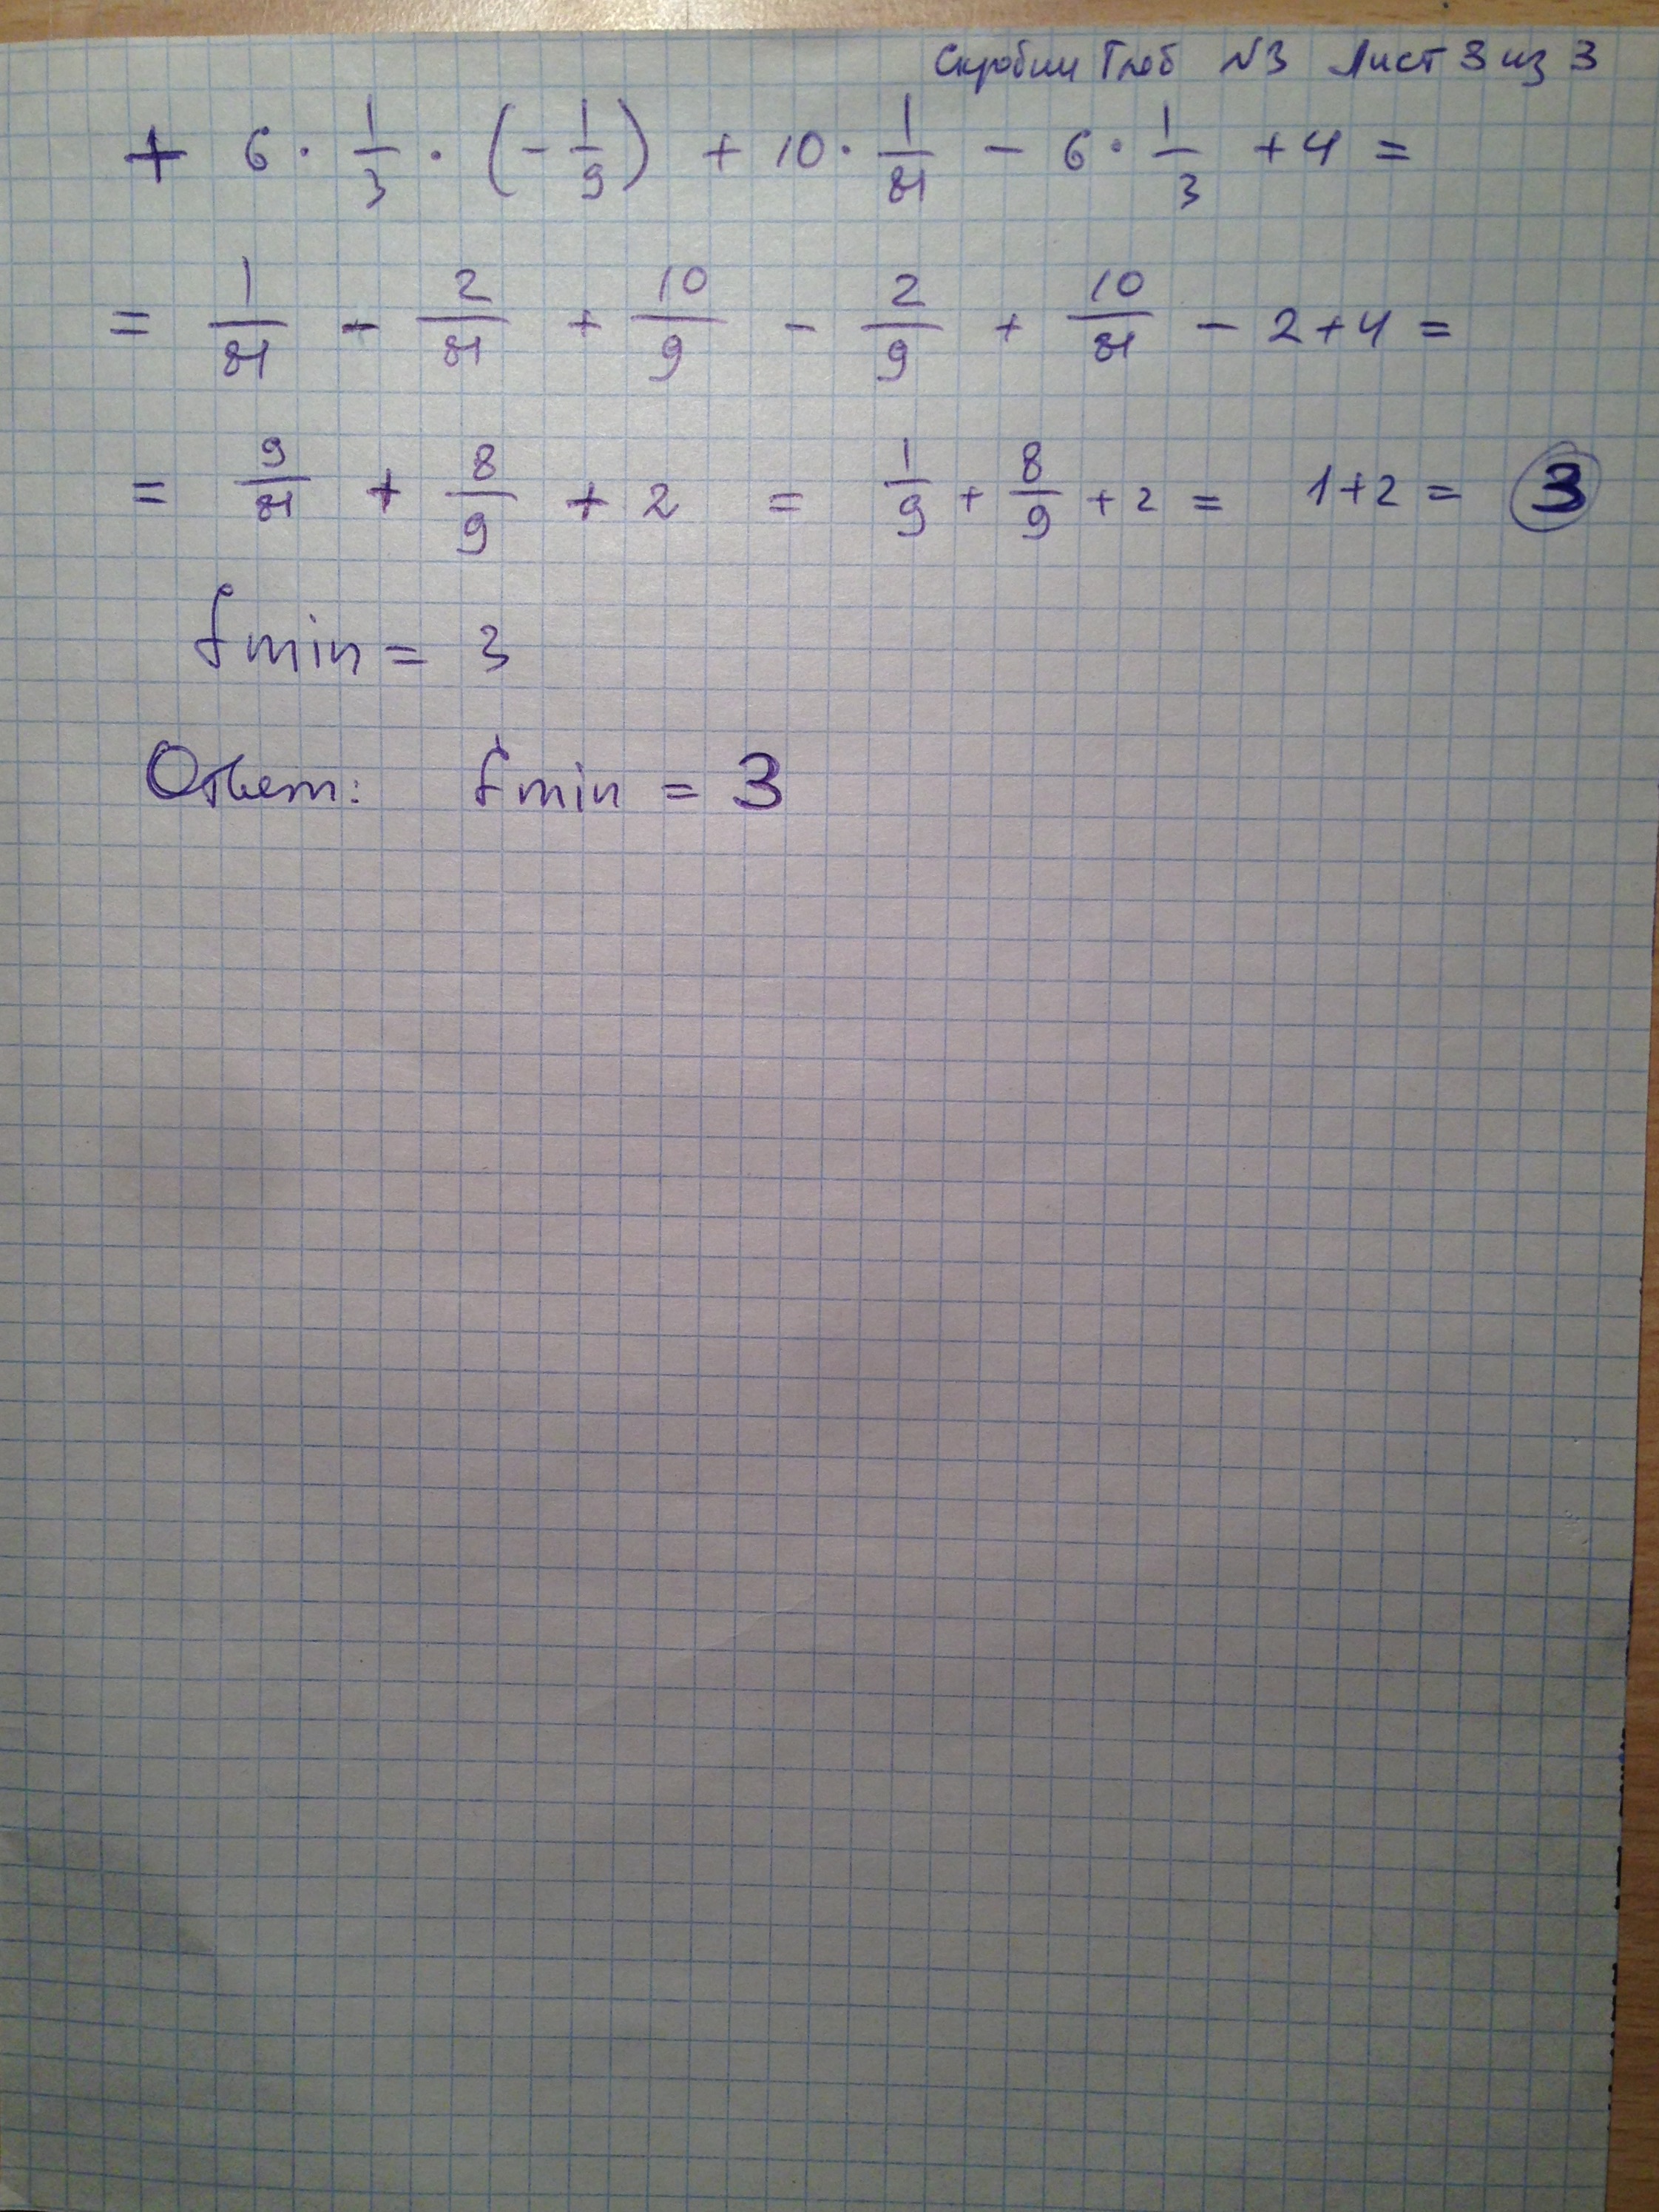 Скробин Глеб №3 Лист 3 из 3
+ 6 · 1/3 · (- 1/9) + 10 · 1/81 - 6 · 1/3 + 4 =
= 1/81 - 2/81 + 10/9 - 2/9 + 10/81 - 2 + 4 =
= 9/81 + 8/9 + 2 = 1/9 + 8/9 + 2 = 1 + 2 = 3
fmin = 3
Ответ: fmin = 3